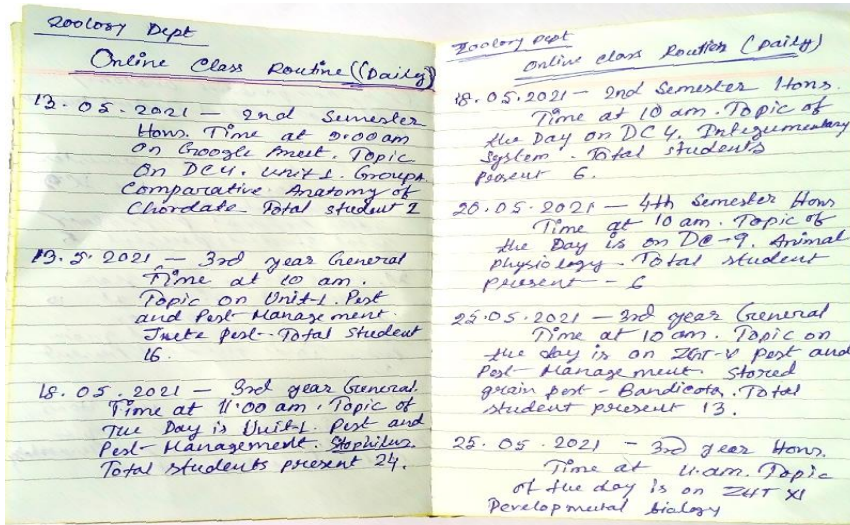 Zoology Dept
Online Class Routine (Daily)
13.05.2021 — 2nd Semester
Hons. Time at 9:00am
on Google meet. Topic
On DC4. Unit 1. Group A.
Comparative Anatomy of
Chordate. Total student 2
13.5.2021 — 3rd year General
Time at 10 am.
Topic on Unit-1. Pest
and Pest Management.
Jute pest. Total student
16.
18.05.2021 — 3rd year General.
Time at 11:00 am. Topic of
The Day is Unit-1. Pest and
Pest-Management. Sitophilus.
Total students present 24.
Zoology Dept
Online class Routien (Daily)
18.05.2021 — 2nd Semester Hons.
Time at 10 am. Topic of
the Day on DC 4. Integumentary
System. Total students
present 6.
20.05.2021 — 4th Semester Hons
Time at 10 am. Topic of
the Day is on DC-9. Animal
physiology. Total student
present - 6
25.05.2021 — 3rd year General
Time at 10 am. Topic on
the day is on ZGT-V Pest and
Pest Management. Stored
grain pest - Bandicota. Total
student present 13.
25.05.2021 - 3rd year Hons.
Time at 11.am. Topic
of the day is on ZHT XI
Developmental biology